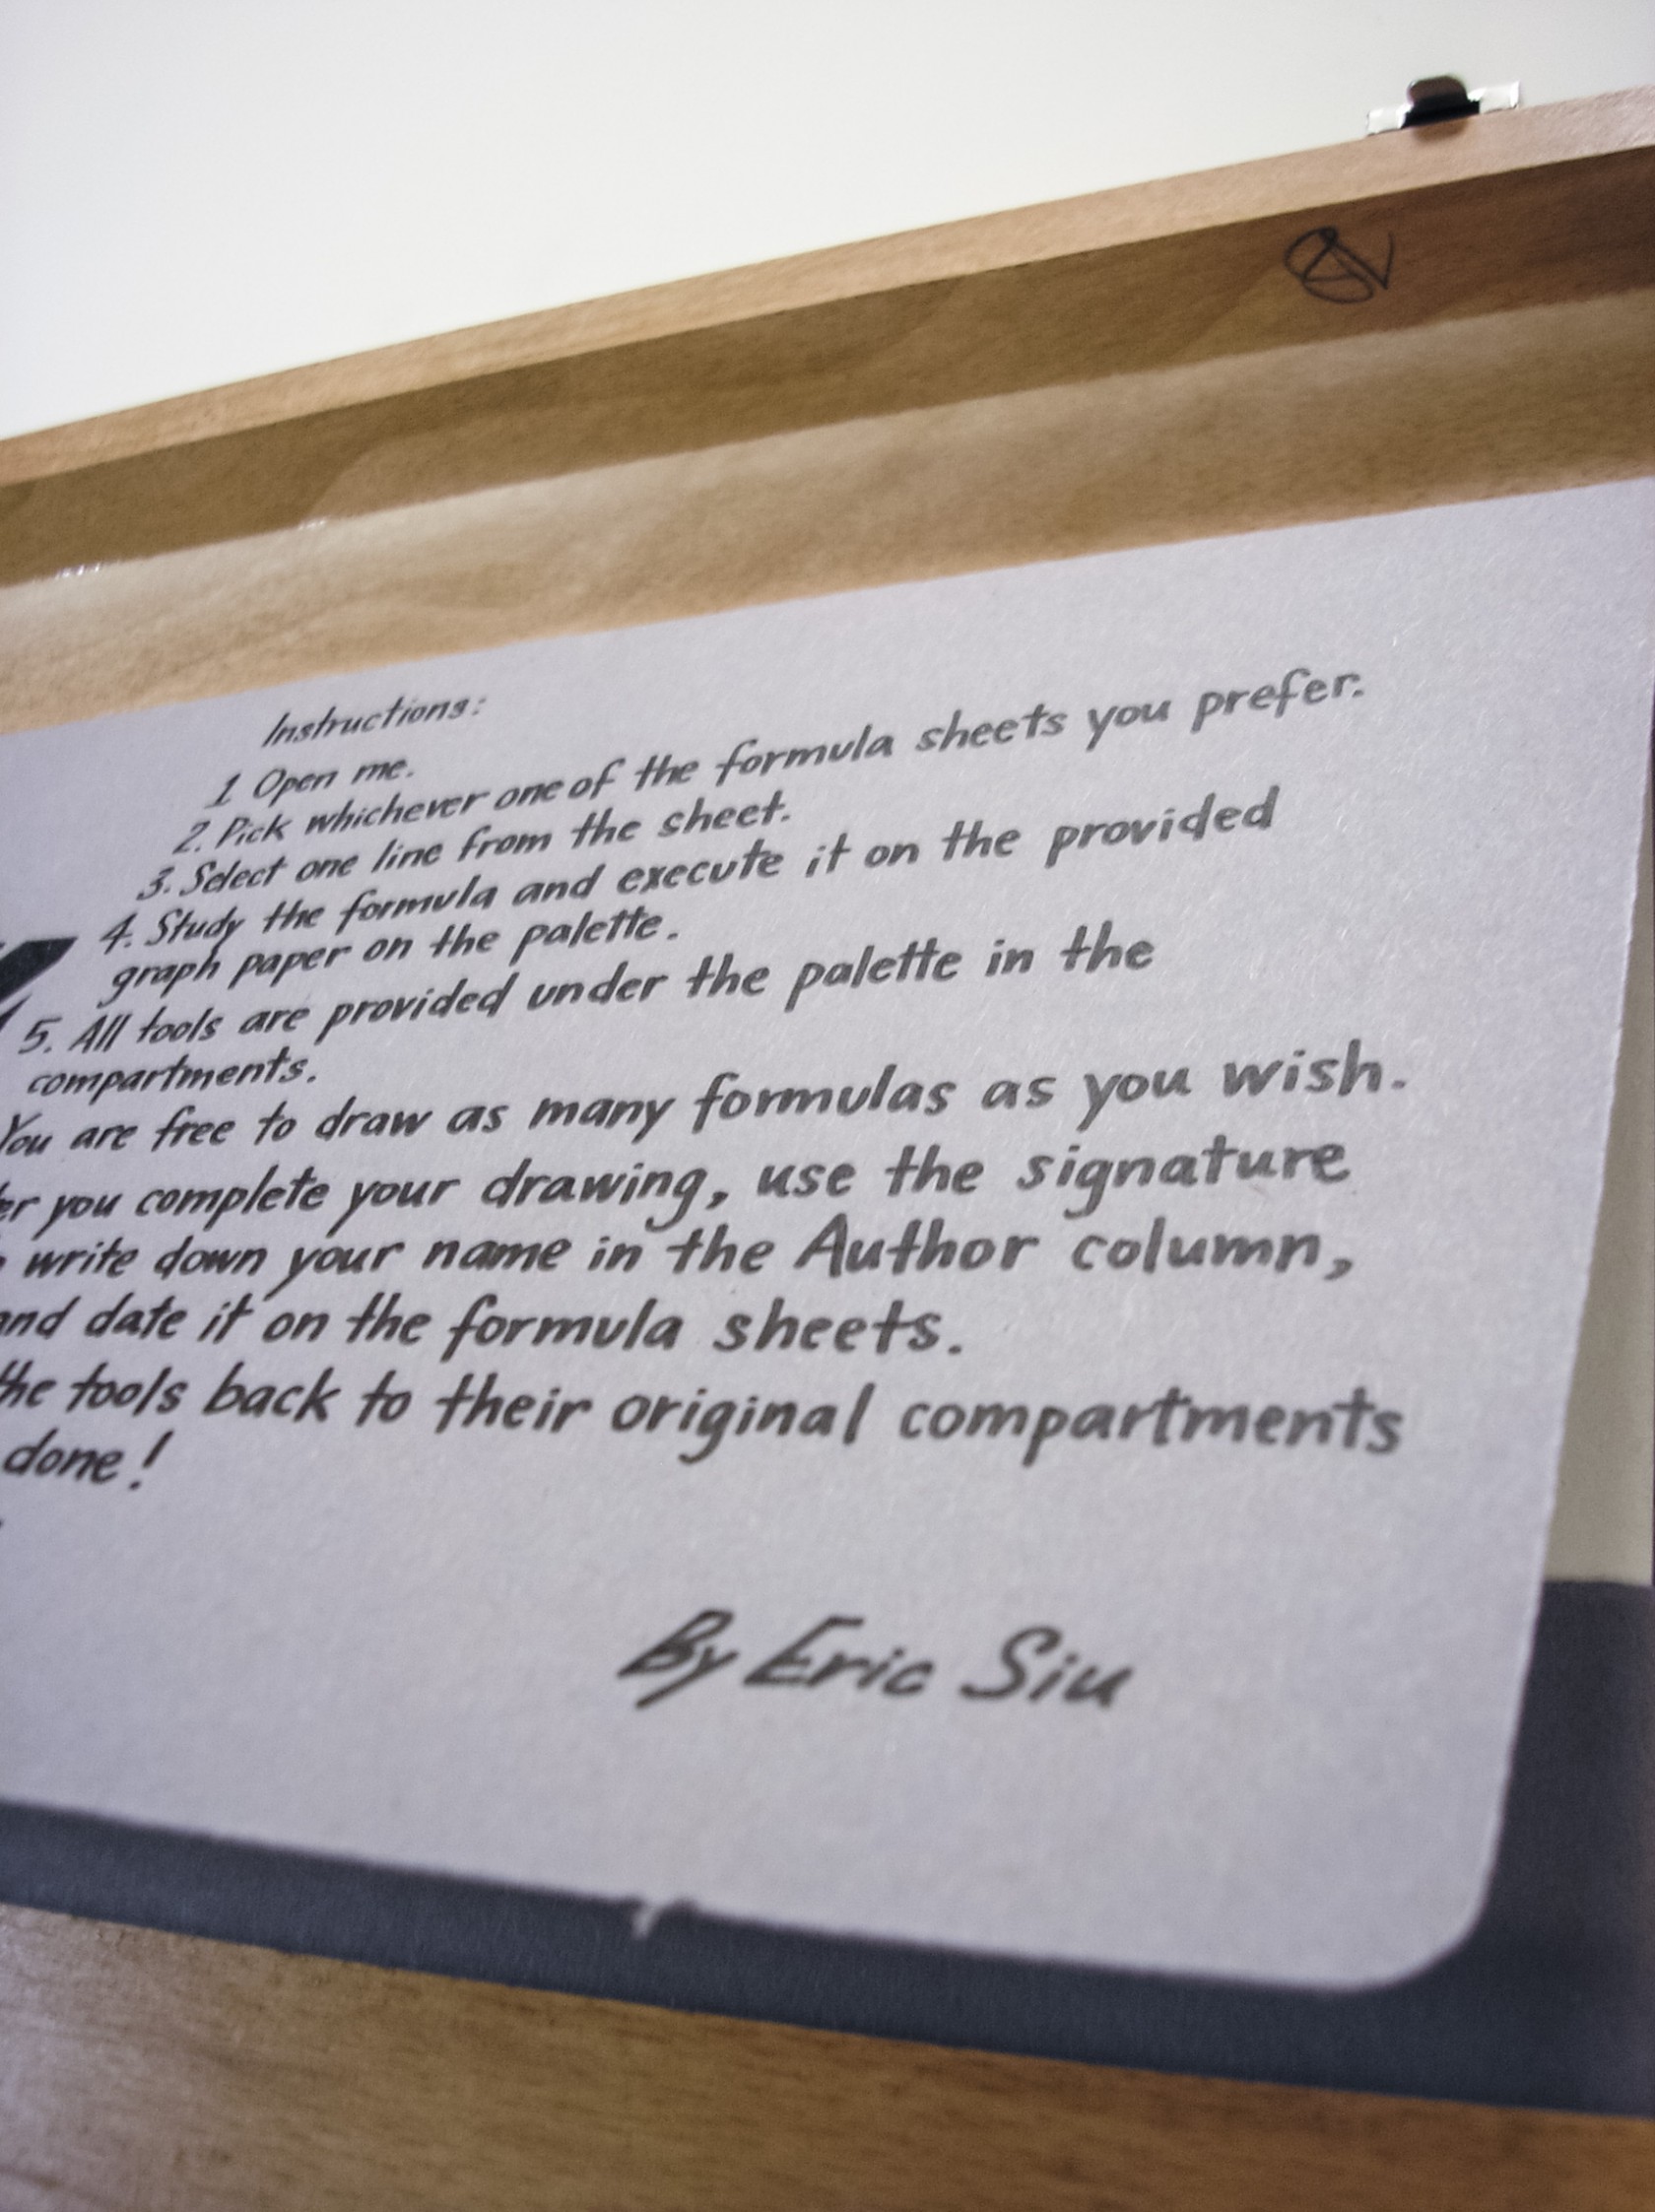 Instructions:
1 Open me.
2. Pick whichever one of the formula sheets you prefer.
3. Select one line from the sheet.
4. Study the formula and execute it on the provided
graph paper on the palette.
5. All tools are provided under the palette in the
compartments.
You are free to draw as many formulas as you wish.
you complete your drawing, use the signature
write down your name in the Author column,
and date it on the formula sheets.
the tools back to their original compartments
done!
By Eric Siu